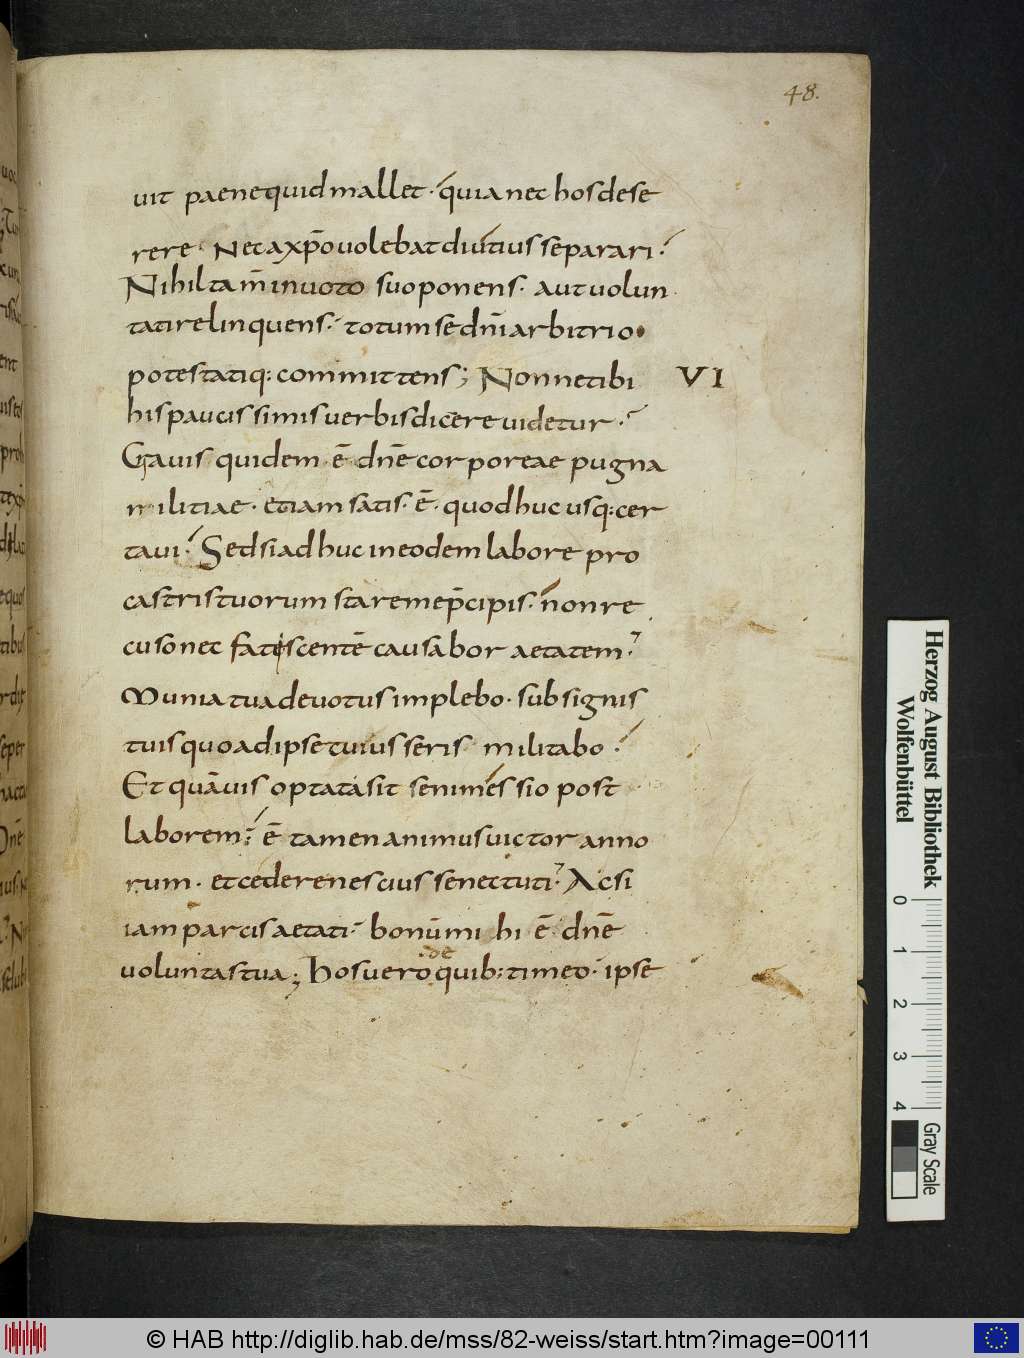 48.
uit paene quid mallet· quia nec hos dese
rere· Nec a xp̄o uolebat diutius separari;
Nihil tam̄ in uoto suo ponens· aut uolun
tati relinquens· totum se dn̄i arbitrio
potestatiq: committens; Nonne tibi VI
his paucissimis uerbis dicere uidetur·
Gauis quidem ē dn̄e corporeae pugna
militiae· etiam satis· ē· quod huc usq: cer
taui· Sed si adhuc in eodem labore pro
castris tuorum stare me p̄cipis· non re
cuso nec fatiscentē causabor aetatem·
Munia tua deuotus implebo· sub signis
tuis quo ad ipse tu iusseris militabo·
Et quāuis optata sit seni missio post
laborem· ē tamen animus uictor anno
rum· et cedere nescius senectuti· Ac si
iam parcis aetati· bonūmi hi ē dn̄e
uoluntas tua; hos uero de quib: timeo· ipse
Herzog August Bibliothek
Wolfenbüttel
0 1 2 3 4
Gray Scale
© HAB http://diglib.hab.de/mss/82-weiss/start.htm?image=00111